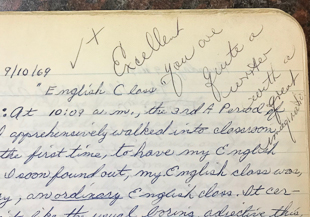 9/10/69
✓+
Excellent
You are
quite a
writer
with a
great
imagination
"English Class"
: At 10:09 a.m., the 3rd A Period,
I apprehensively walked into classroom,
the first time, to have my English
I soon found out, my English class was,
y, an ordinary English class. It cer-
like the usual, boring, adjective this,